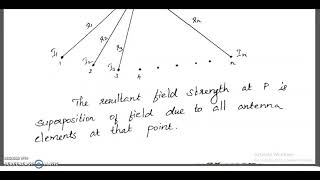 r₁ r₂ r₃ rₙ
I₁ I₂ I₃ Iₙ
1 2 3 4 n
The resultant field strength at P is
superposition of field due to all antenna
elements at that point.